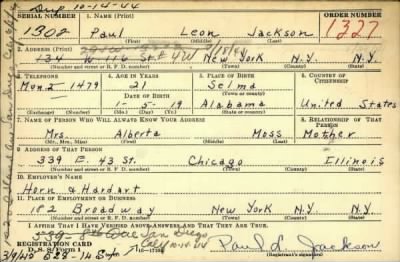 Dup 10-14-44
SERIAL NUMBER 1. NAME (Print) ORDER NUMBER
1302 Paul Leon Jackson 1327
2. ADDRESS (Print)
134 W 116 St # 4W New York N.Y. N.Y.
(Number and street or R. F. D. number) (Town) (County) (State)
3. TELEPHONE 4. AGE IN YEARS 5. PLACE OF BIRTH 6. COUNTRY OF CITIZENSHIP
Mon. 2 1479 21 Selma
DATE OF BIRTH
1-5-19 Alabama United States
(Exchange) (Number) (Mo.) (Day) (Yr.) (State or country)
7. NAME OF PERSON WHO WILL ALWAYS KNOW YOUR ADDRESS 8. RELATIONSHIP OF THAT PERSON
Mrs. Alberta Moss Mother
(Mr., Mrs., Miss) (First) (Middle) (Last)
9. ADDRESS OF THAT PERSON
339 E. 43 St. Chicago Illinois
(Number and street or R. F. D. number) (Town) (County) (State)
10. EMPLOYER'S NAME
Horn & Hardart
11. PLACE OF EMPLOYMENT OR BUSINESS
182 Broadway New York N.Y.
(Number and street or R. F. D. number) (Town) (County) (State)
I AFFIRM THAT I HAVE VERIFIED ABOVE ANSWERS AND THAT THEY ARE TRUE.
San Diego
REGISTRATION CARD Calif 10-14-44 Paul L. Jackson
D. S. S. Form 1 (Registrant's signature)